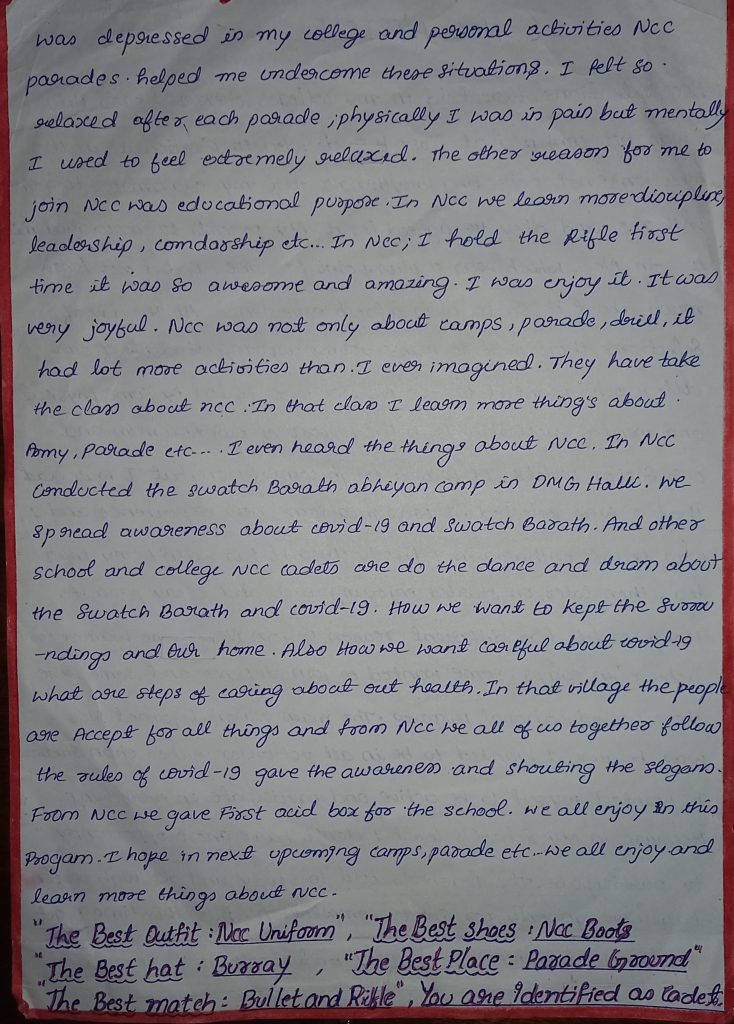 was depressed in my college and personal activities Ncc
parades. helped me undercome these situations. I felt so.
relaxed after each parade, physically I was in pain but mentally
I used to feel extremely relaxed. The other reason for me to
join Ncc was educational purpose. In Ncc we learn more discipline,
leadership, comdarship etc... In Ncc, I hold the Rifle first
time it was so awesome and amazing. I was enjoy it. It was
very joyful. Ncc was not only about camps, parade, drill, it
had lot more activities than. I ever imagined. They have take
the class about ncc. In that class I learn more thing's about.
Army, Parade etc.... I even heard the things about Ncc. In Ncc
Conducted the swatch Barath abhiyan camp in DMG Halli. we
spread awareness about covid-19 and Swatch Barath. And other
school and college Ncc cadets are do the dance and dram about
the Swatch Barath and covid-19. How we want to kept the surrou
-ndings and our home. Also How we want careful about covid-19
what are steps of caring about out health. In that village the people
are Accept for all things and from Ncc we all of us together follow
the rules of covid-19 gave the awareness and shouting the slogans.
From Ncc we gave First acid box for the school. we all enjoy in this
Progam. I hope in next upcoming camps, parade etc.. we all enjoy and
learn more things about ncc.
"The Best Outfit : Ncc Uniform", "The Best shoes : Ncc Boots
"The Best hat : Burray , "The Best Place : Parade Ground"
"The Best match : Bullet and Rifle", You are identified as Cadets.